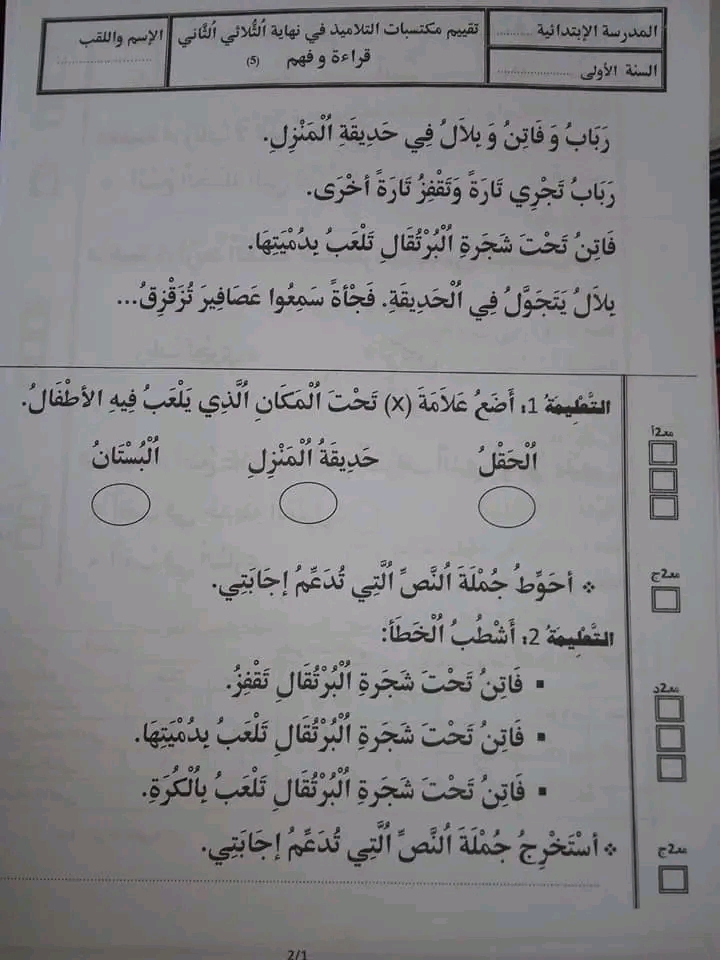 المدرسة الإبتدائية ..........
السنة الأولى ....................
تقييم مكتسبات التلاميذ في نهاية اَلثُّلاثي اَلثَّاني
قراءة و فهم (5)
الإسم واللقب
.........................
رَبَابُ وَ فَاتِنُ وَ بِلاَلُ فِي حَدِيقَةِ اُلْمَنْزِلِ.
رَبَابُ تَجْرِي تَارَةً وَتَقْفِزُ تَارَةً أخْرَى.
فَاتِنُ تَحْتَ شَجَرَةِ اُلْبُرْتُقَالِ تَلْعَبُ بِدُمْيَتِهَا.
بِلاَلُ يَتَجَوَّلُ فِي اُلْحَدِيقَةِ. فَجْأةً سَمِعُوا عَصَافِيرَ تُزَقْزِقُ...
التَّعْلِيمَةُ 1: أَضَعُ عَلاَمَةَ (x) تَحْتَ اُلْمَكَانِ اُلَّذِي يَلْعَبُ فِيهِ الأطْفَالُ.
مع2أ
اُلْحَقْلُ حَدِيقَةُ اُلْمَنْزِلِ اُلْبُسْتَانُ
أحَوِّطُ جُمْلَةَ اُلنَّصِّ اُلَّتِي تُدَعِّمُ إجَابَتِي.
مع2ج
التَّعْلِيمَةُ 2: أَشْطُبُ اُلْخَطَأَ:
▪ فَاتِنُ تَحْتَ شَجَرَةِ اُلْبُرْتُقَالِ تَقْفِزُ.
مع2د
▪ فَاتِنُ تَحْتَ شَجَرَةِ اُلْبُرْتُقَالِ تَلْعَبُ بِدُمْيَتِهَا.
▪ فَاتِنُ تَحْتَ شَجَرَةِ اُلْبُرْتُقَالِ تَلْعَبُ بِاُلْكُرَةِ.
أسْتَخْرِجُ جُمْلَةَ اُلنَّصِّ اُلَّتِي تُدَعِّمُ إجَابَتِي.
مع2ج
2/1